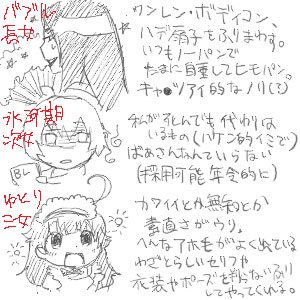 バブル
長女
ワンレン・ボディコン、
ハデ扇子もふりまわす。
いつもノーパンで
たまに自重してヒモパン。
キャッツアイ的なノリ(て)
氷河期
次女
私が死んでも代わりは
いるもの(ハケン的イミで)
ばあさんなんていらない
(採用可能年令的に)
BL
ゆとり
三女
カワイイとか無知とか
素直さがウリ。
へんなアホ毛がよく出ている
わざとらしいセリフや
衣装やポーズを判らないふり
してやってくれる。